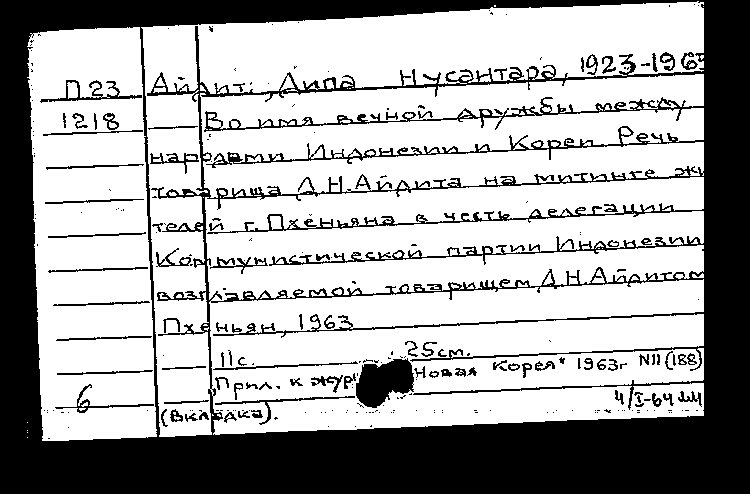 П23 Айдит, Дипа Нусантара, 1923-1965
1218 Во имя вечной дружбы между
народами Индонезии и Кореи. Речь
товарища Д.Н.Айдита на митинге жи
телей г. Пхеньяна в честь делегации
Коммунистической партии Индонезии,
возглавляемой товарищем Д.Н.Айдитом
Пхеньян, 1963
11с. 25см.
"Прил. к жур "Новая Корея" 1963г N11(188)
6 (Вкладка). 4/I-64